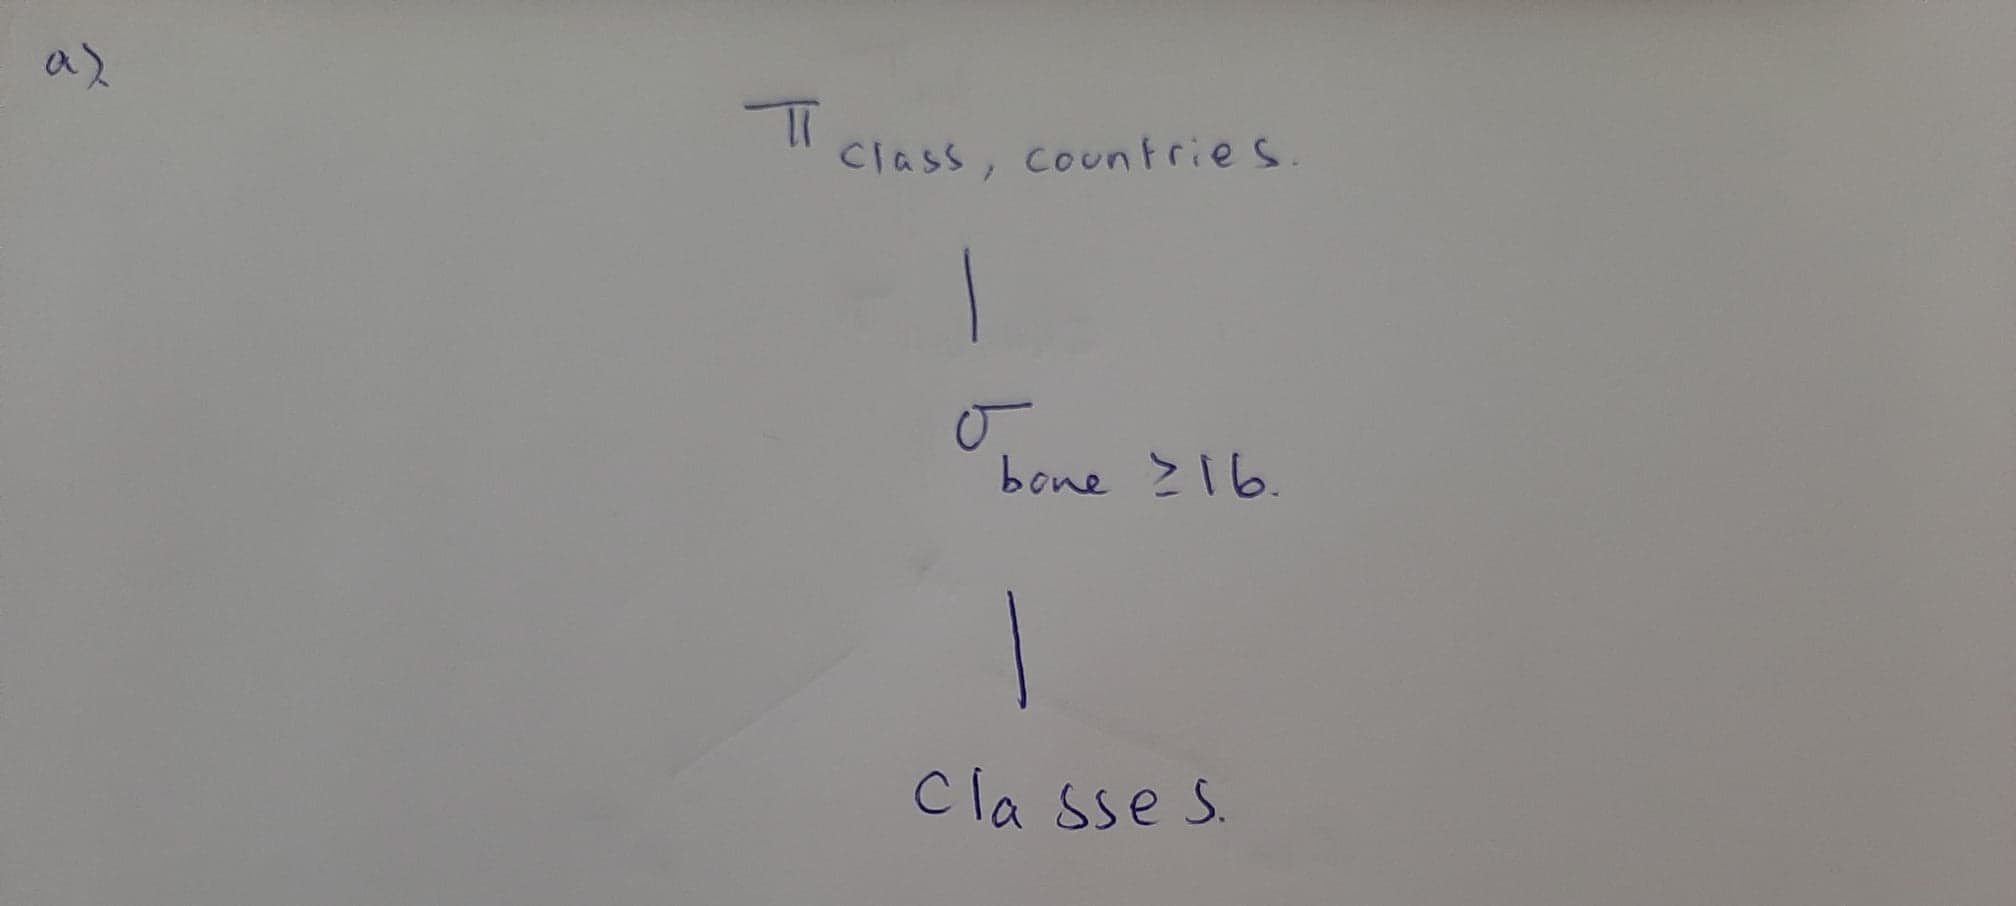 a)
π class, countries.
σ bone ≥ 16.
Classes.